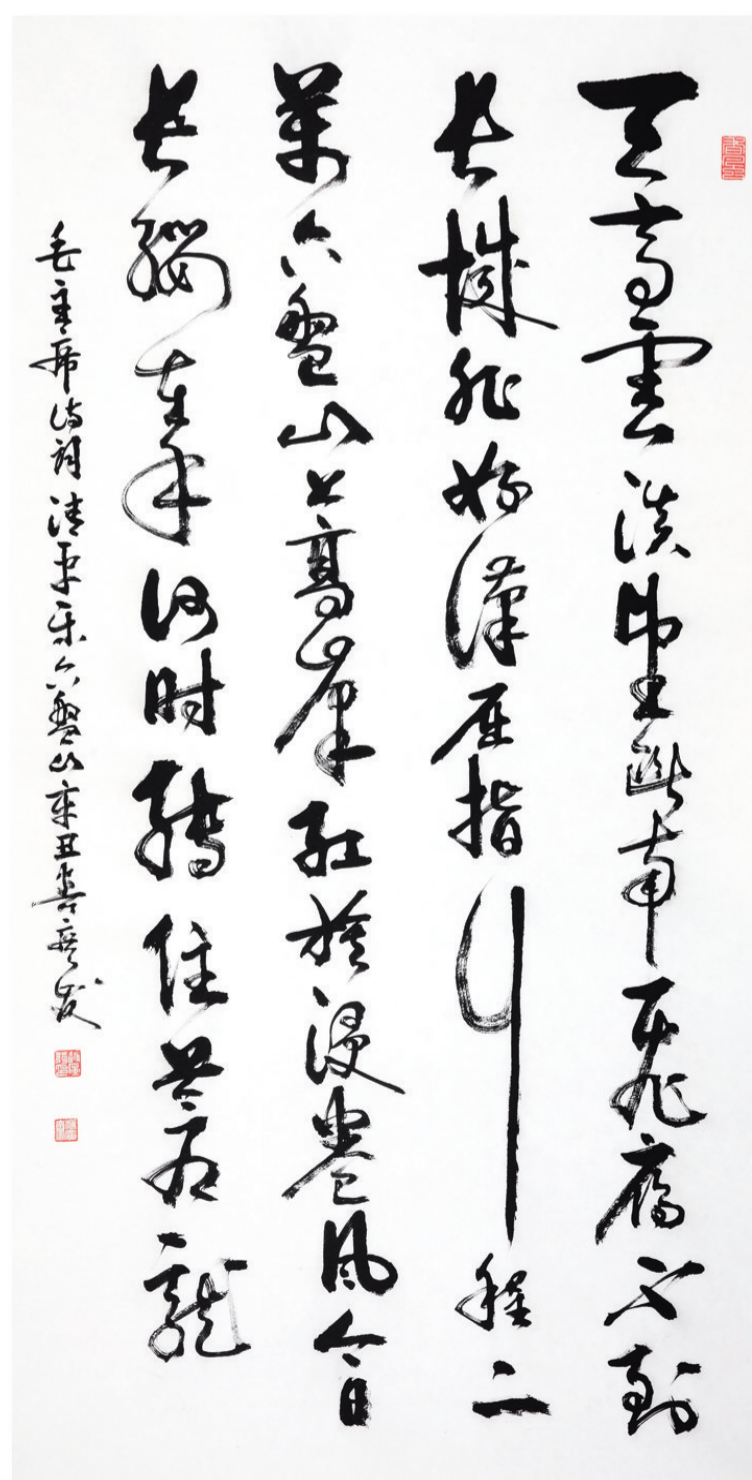 天高雲淡望斷南飛雁不到
长城非好漢屈指行程二
萬六盤山上高峰红旗漫卷風今日
长纓在手何时縛住苍龍
毛主席诗词清平乐六盤山辛丑